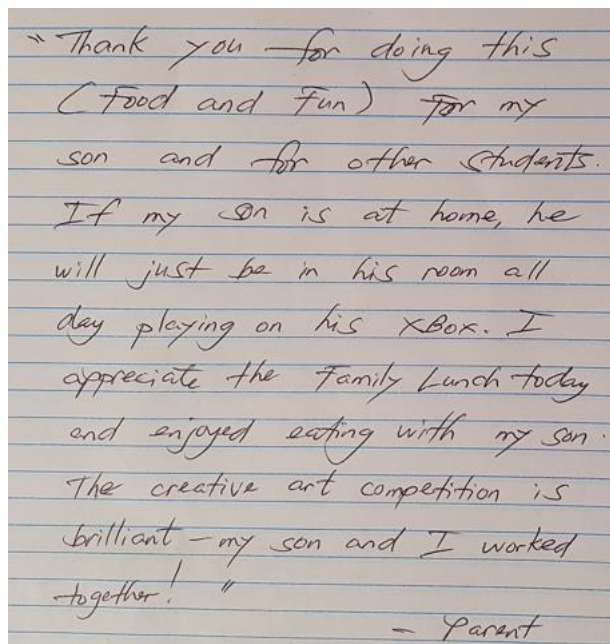 "Thank you for doing this
(Food and Fun) for my
son and for other students.
If my son is at home, he
will just be in his room all
day playing on his XBox. I
appreciate the Family Lunch today
and enjoyed eating with my son.
The creative art competition is
brilliant – my son and I worked
together! "
- Parent